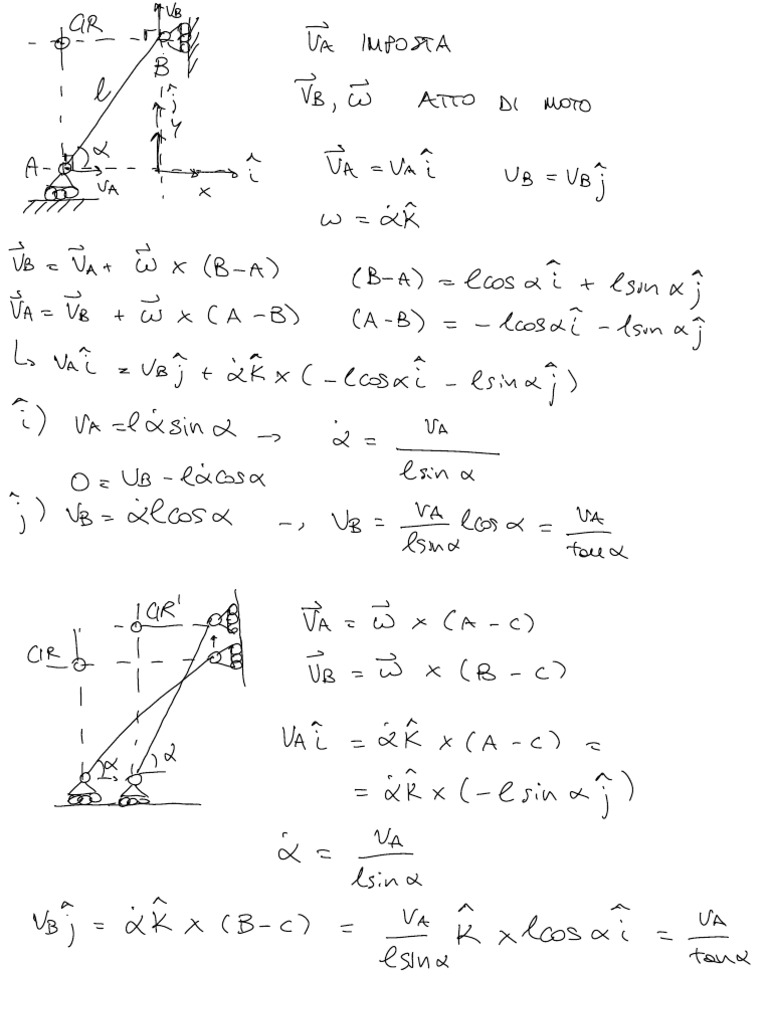 CIR
V_B
B
l
ĵ
y
A
α
v_A
x
î
V⃗_A IMPOSTA
V⃗_B, ω⃗ ATTO DI MOTO
V⃗_A = v_A î   v_B = v_B ĵ
ω = α̇ k̂
V⃗_B = V⃗_A + ω⃗ × (B-A)   (B-A) = l cos α î + l sin α ĵ
V⃗_A = V⃗_B + ω⃗ × (A-B)   (A-B) = - l cos α î - l sin α ĵ
↳ v_A î = v_B ĵ + α̇ k̂ × (- l cos α î - l sin α ĵ)
î) v_A = l α̇ sin α → α̇ = v_A / l sin α
0 = v_B - l α̇ cos α
ĵ) v_B = α̇ l cos α → v_B = v_A / l sin α l cos α = v_A / tan α
CIR'
CIR
α
α
V⃗_A = ω⃗ × (A-C)
V⃗_B = ω⃗ × (B-C)
v_A î = α̇ k̂ × (A-C) =
= α̇ k̂ × (- l sin α ĵ)
α̇ = v_A / l sin α
v_B ĵ = α̇ k̂ × (B-C) = v_A / l sin α k̂ × l cos α î = v_A / tan α